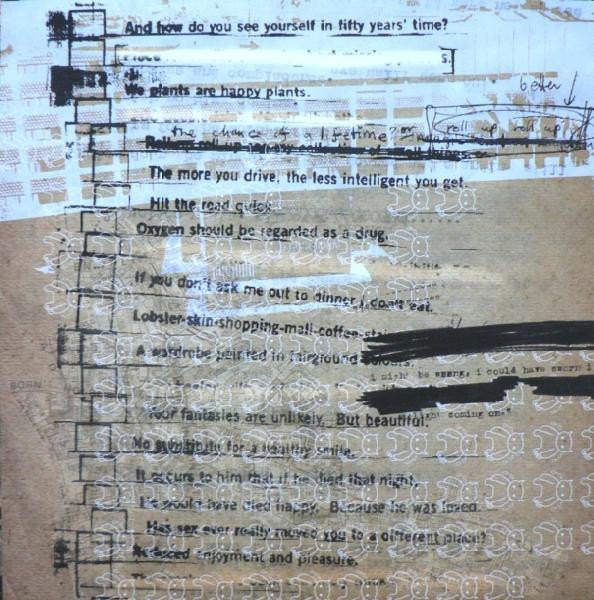 And how do you see yourself in fifty years' time?
We plants are happy plants.
better
the chance of a lifetime? or
roll up roll up
The more you drive, the less intelligent you get.
Hit the road quick.
Oxygen should be regarded as a drug.
If you don't ask me out to dinner I don't eat.
Lobster-skin-shopping-mall-coffee-
A wardrobe painted in fairground colours.
i might be wrong, i could have sworn i
light coming on"
Your fantasies are unlikely. But beautiful.
BORN
No substitute for a healthy smile.
It occurs to him that if he died that night,
He would have died happy. Because he was loved.
Has sex ever really moved you to a different place?
Reduced enjoyment and pleasure.